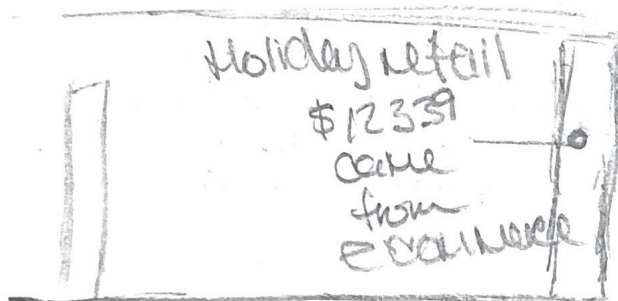 Holiday retail
$123.39
came
from
ecommerce